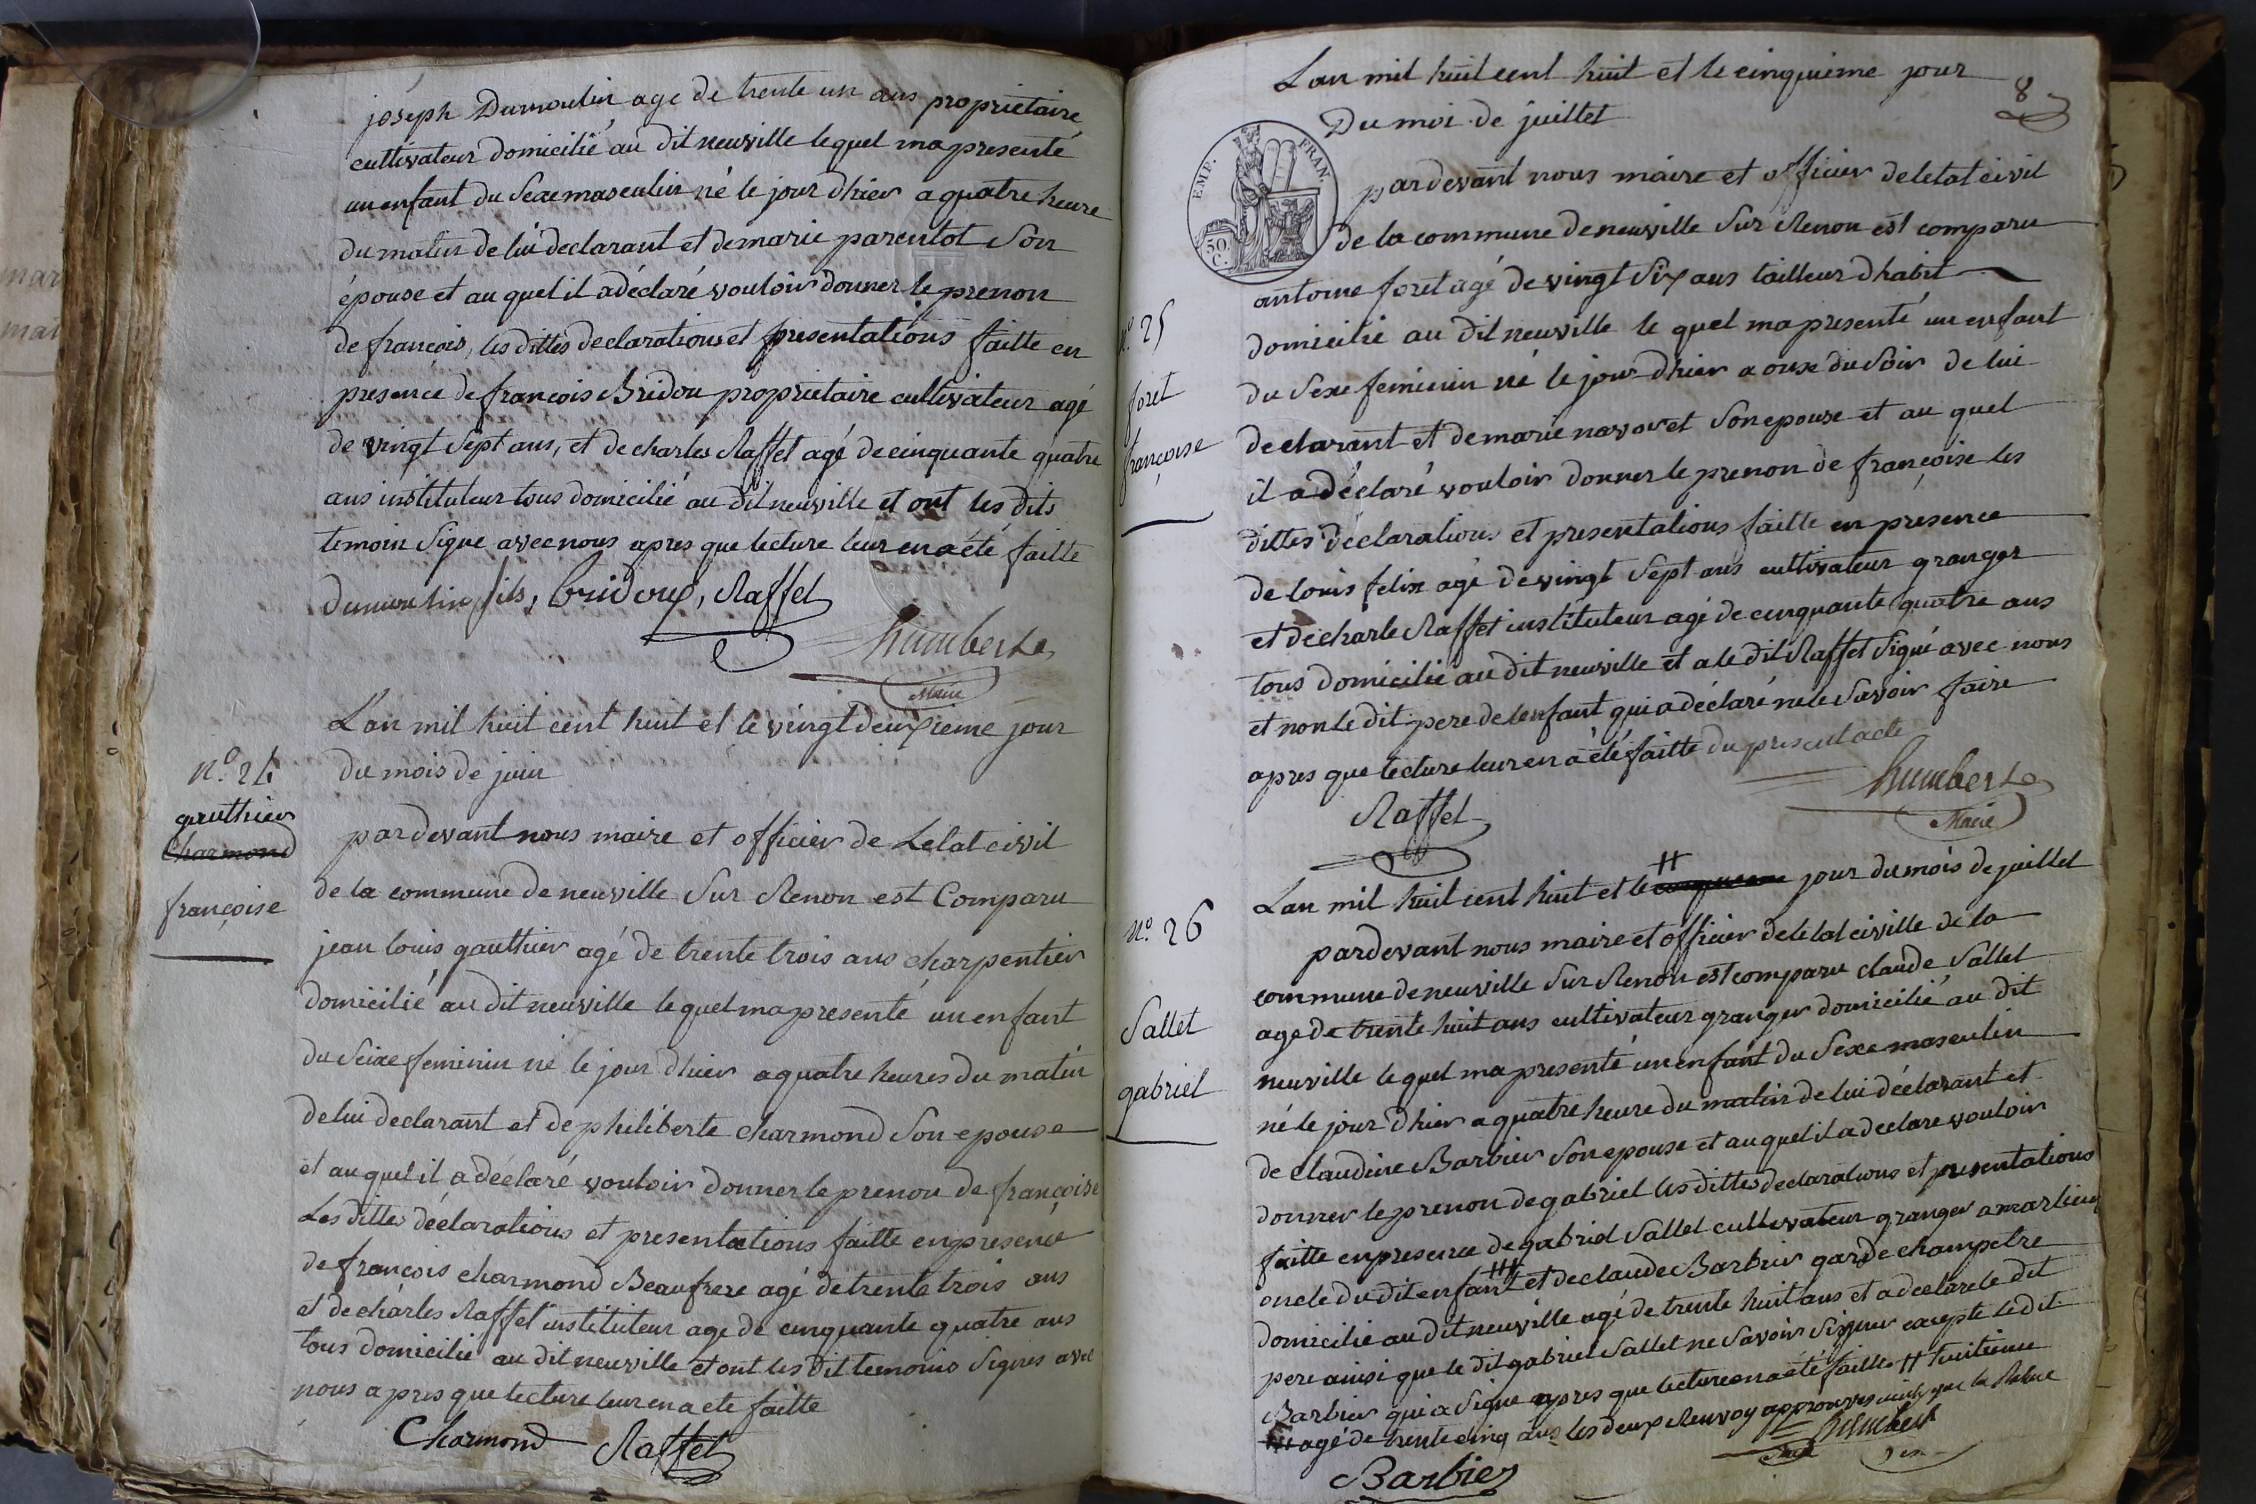 joseph Dumoulin, agé de trente un ans propriétaire
cultivateur domicilié au dit neuville lequel ma presenté
un enfant du Sexe masculin né le jour dhier a quatre heure
du matin de lui declarant et de marie parentot Son
épouse et au quel il a déclaré vouloir donner le prenon
de françois, les dittes declarations et presentations faitte en
presence de françois Bridou propriétaire cultivateur agé
de vingt Sept ans, et de charles Raffet agé de cinquante quatre
ans instituteur tous domicilié au dit neuville et ont les dits
temoin Signe avec nous apres que lecture leur en a été faitte
dumoulin fils, bridoux, Raffet
humbert
Maire
Lan mil huit cent huit et le vingt deuxieme jour
du mois de juin
n.º 24
gauthier
Charmond
françoise
par devant nous maire et officier de Letat civil
de la commune de neuville Sur Renon est Comparu
jean louis gauthier agé de trente trois ans charpentier
domicilié au dit neuville lequel ma presenté un enfant
du Seixe feminin né le jour dhier a quatre heures du matin
de lui declarant et de philiberte charmond Son epouse
et au quel il a déclaré vouloir donner le prenon de françoise
Les dittes déclarations et presentations faitte en presence
de françois charmond Beaufrere agé de trente trois ans
et de charles Raffet instituteur age de cinquante quatre ans
tous domicilié au dit neuville et ont les dit temoins Signes avec
nous apres que lecture leur en a ete faitte
Charmond Raffet
8
Lan mil huit cent huit et le cinquieme jour
Du moi de juillet
EMP. FRAN.
50 C.
par devant nous maire et officier de letat civil
de la commune de neuville Sur Renon est comparu
antoine foret agé de vingt Six ans tailleur dhabit
n.º 25
foret
françoise
domicilié au dit neuville le quel ma presenté un enfant
du Sexe feminin né le jour dhier a onze du Soir de lui
declarant et de marie navoret Son epouse et au quel
il a déclaré vouloir donner le prenon de françoise les
dittes déclarations et presentations faitte en presence
de louis felix agé de vingt Sept ans cultivateur granger
et de charle Raffet instituteur agé de cinquante quatre ans
tous domicilié au dit neuville et a le dit Raffet Signé avec nous
et non le dit pere de lenfant qui a déclaré ne le Savoir faire
apres que lecture leur en a été faitte du present acte
humbert
Maire
Raffet
Lan mil huit cent huit et le cinquieme # jour du mois de juillet
n.º 26
Sallet
gabriel
par devant nous maire et officier de letat civille de la
commune de neuville Sur Renon est comparu claude Sallet
age de trente huit ans cultivateur granger domicilié au dit
neuville lequel ma presenté un enfant du Sexe masculin
né le jour dhier a quatre heure du matin de lui déclarant et
de claudine Barbier Son epouse et au quel il a declare vouloir
donner le prenon de gabriel les dittes declarations et presentations
faitte en presence de gabriel Sallet cultivateur granger a marlieux
oncle du dit enfant et de claude Barbier garde champetre
domicilié au dit neuville agé de trente huit ans et a declare le dit
pere ainsi que le dit gabriel Sallet ne Savoir Signer excepte le dit
Barbier qui a Signe apres que lecture en a été faitte # huitieme
agé de trente cinq ans les deux Renvoy approuves
humbert
Barbier